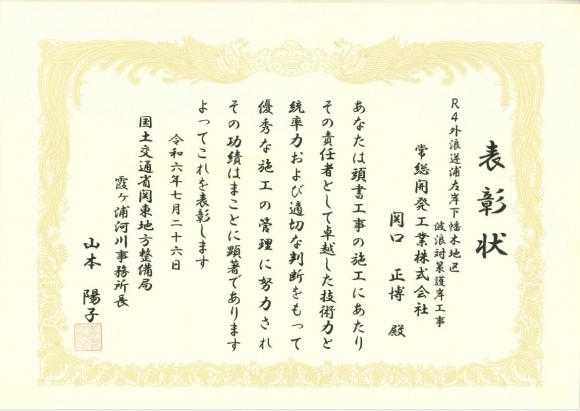 表彰状
R4外浪逆浦左岸下幡木地区
波浪対策護岸工事
常総開発工業株式会社
関口 正博 殿
あなたは頭書工事の施工にあたり
その責任者として卓越した技術力と
統率力および適切な判断をもって
優秀な施工の管理に努力され
その功績はまことに顕著であります
よってこれを表彰します
令和六年七月二十六日
国土交通省関東地方整備局
霞ヶ浦河川事務所長
山本 陽子